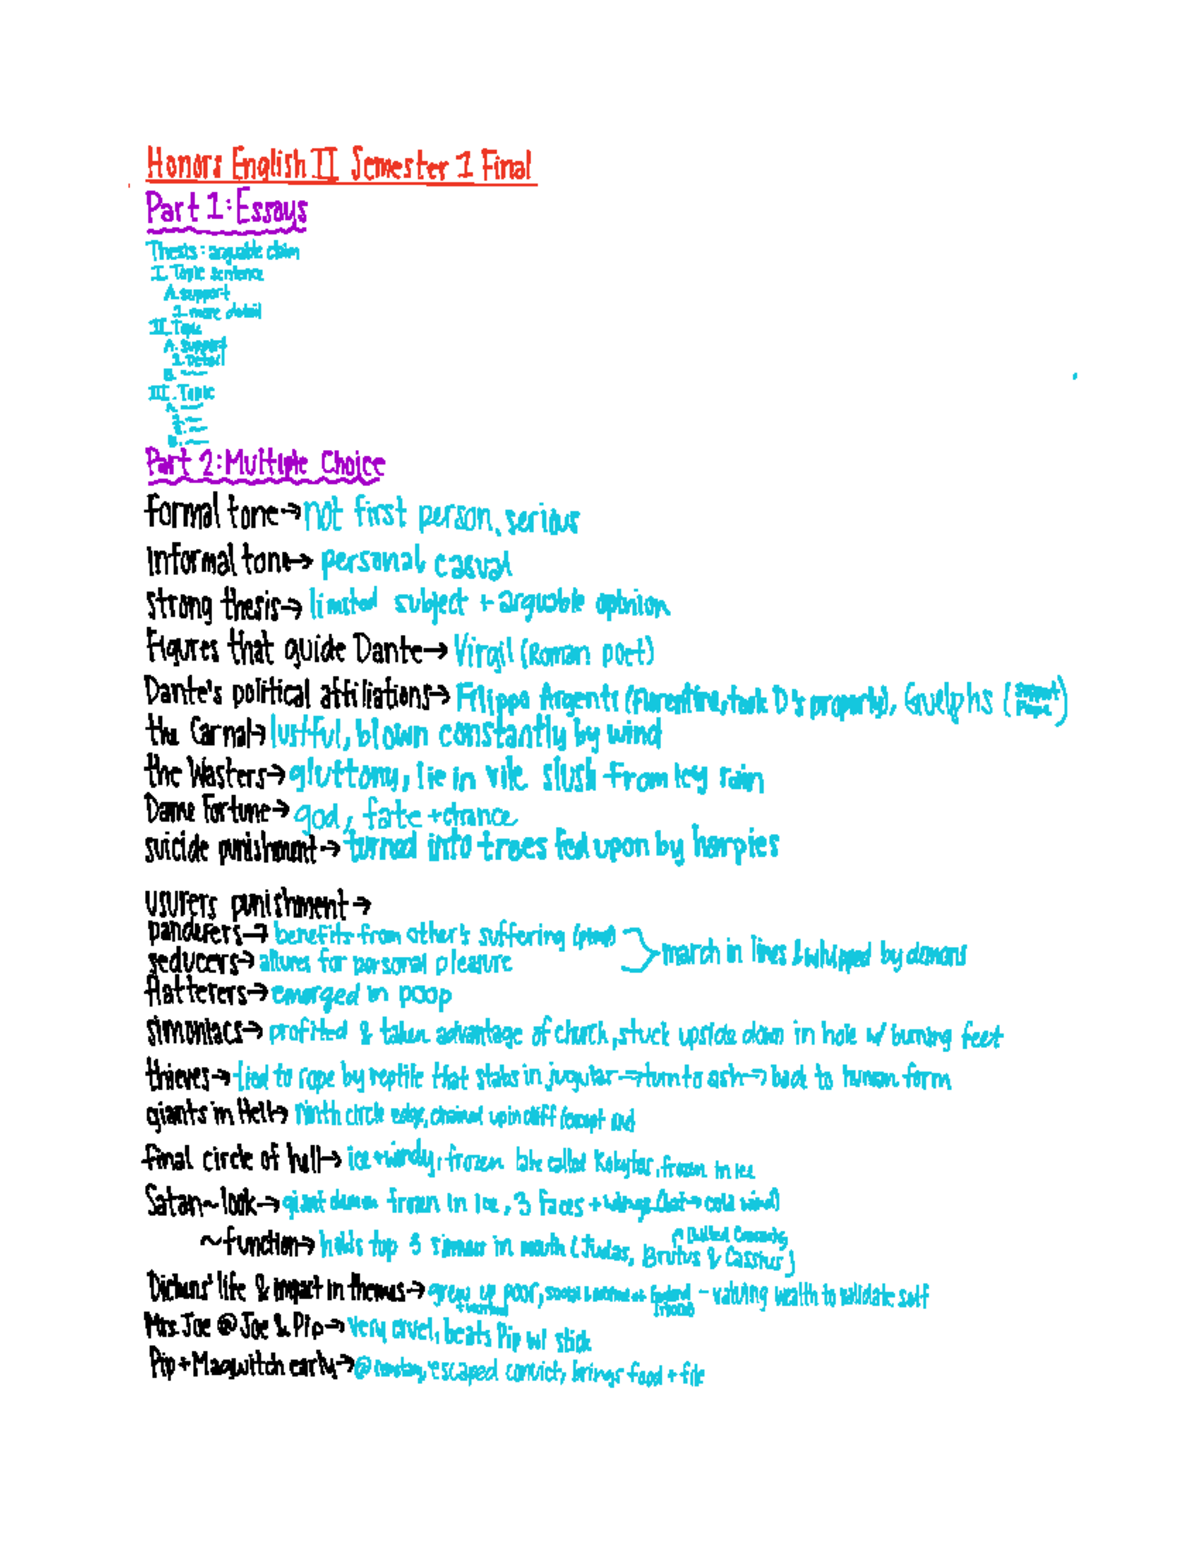 Honors English II Semester 1 Final
Part 1: Essays
Thesis: arguable claim
I. Topic sentence
A. support
1. more detail
II. Topic
A. support
1. Detail
B. —
III. Topic
A. —
1. —
2. —
B. —
Part 2: Multiple Choice
formal tone → not first person, serious
informal tone → personal, casual
strong thesis → limited subject + arguable opinion
Figures that guide Dante → Virgil (Roman poet)
Dante's political affiliations → Filippo Argenti (florentine, took D's property), Guelphs (support Pope)
the Carnal → lustful, blown constantly by wind
the Wasters → gluttony, lie in vile slush from icy rain
Dame Fortune → god, fate + chance
suicide punishment → turned into trees fed upon by harpies
usurers punishment →
panderers → benefits from other's suffering (pimp)
seducers → allures for personal pleasure
march in lines & whipped by demons
flatterers → emerged in poop
simoniacs → profited & taken advantage of church, stuck upside down in hole w/ burning feet
thieves → tied to rope by reptile that stabs in jugular → turn to ash → back to human form
giants in Hell → ninth circle edge, chained up in cliff (except
final circle of hell → ice + windy, frozen lake called Kokytus, frozen in ice
Satan ~ look → giant demon frozen in ice, 3 faces + wings (bat → cold wind)
~ function → holds top 3 sinners in mouth (Judas, Brutus & Cassius)
Dickens' life & impact in themes → grew up poor, social England - valuing wealth to validate self
+ worked
Mrs. Joe @ Joe & Pip → very cruel, beats Pip w/ stick
Pip + Magwitch early → @ escaped convict, brings food + file